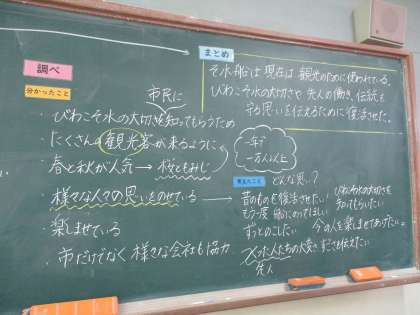 まとめ
そ水船は現在は観光のために使われている。
びわこそ水の大切さや先人の働き、伝統を
守る思いを伝えるために復活させた。
調べ
分かったこと
市民に
・びわこそ水の大切さを知ってもらうため
・たくさんの観光客が来るように
一年で
一万人以上
・春と秋が人気→桜ともみじ
・様々な人々の思いをのせている
考えたこと
どんな思い?
・昔のものを復活させたい
・もう一度船にのってほしい
・びわこそ水の大切さを
知ってもらいたい
・ずっとのこしたい
・今の人を楽しませてあげたい
・楽しませている
・市だけでなく様々な会社も協力
・人たちの大変さ、すごさを伝えたい
先人